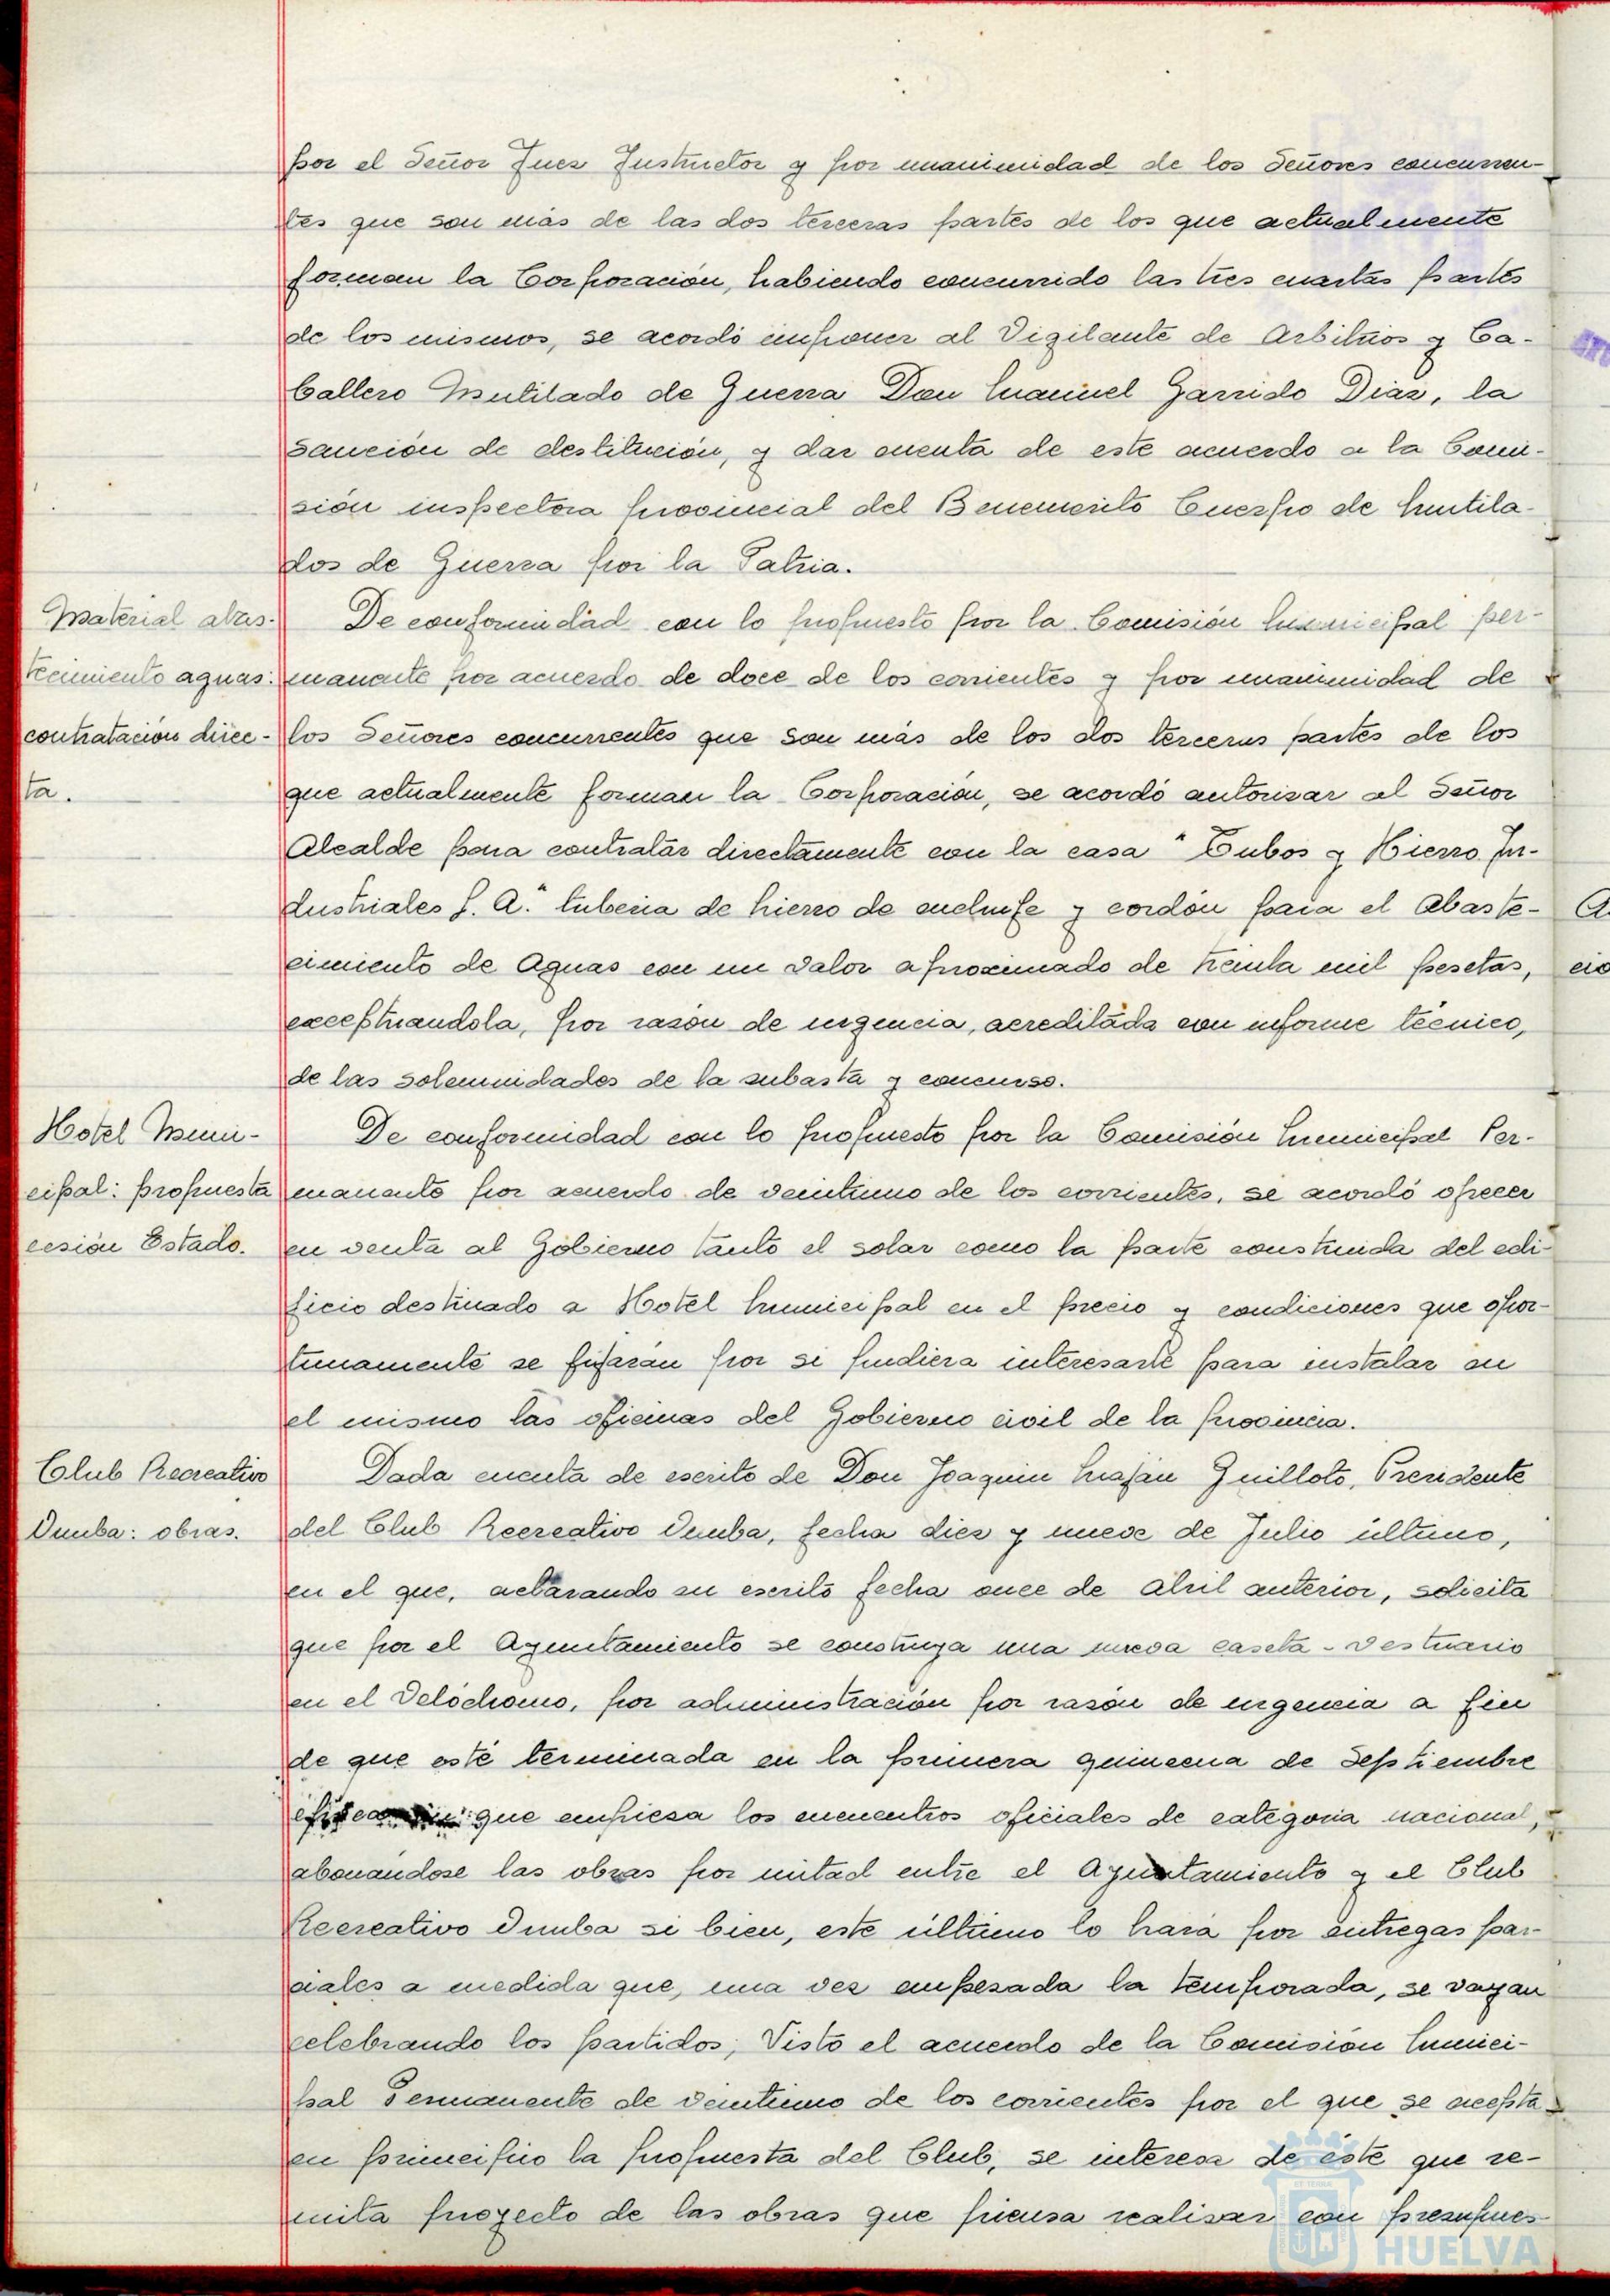 por el Señor Juez Instructor y por unanimidad de los Señores concurren-
tes que son más de las dos terceras partes de los que actualmente
forman la Corporación, habiendo concurrido las tres cuartas partes
de los mismos, se acordó imponer al Vigilante de Arbitrios y Ca-
ballero Mutilado de Guerra Don Manuel Garrido Diaz, la
sanción de destitución, y dar cuenta de este acuerdo a la Comi-
sión inspectora provincial del Benemerito Cuerpo de Mutila-
dos de Guerra por la Patria.
Material abas-
tecimiento aguas:
contratación direc-
ta.
De conformidad con lo propuesto por la Comisión Municipal per-
manente por acuerdo de doce de los corrientes y por unanimidad de
los Señores concurrentes que son más de los dos terceras partes de los
que actualmente forman la Corporación, se acordó autorizar al Señor
Alcalde para contratar directamente con la casa "Tubos y Hierro In-
dustriales S. A." tuberia de hierro de enchufe y cordón para el Abaste-
cimiento de Aguas con un valor aproximado de treinta mil pesetas,
exceptuandola, por razón de urgencia, acreditada con informe técnico,
de las solemnidades de la subasta y concurso.
Hotel Muni-
cipal: propuesta
cesión Estado.
De conformidad con lo propuesto por la Comisión Municipal Per-
manente por acuerdo de veintiuno de los corrientes, se acordó ofrecer
en venta al Gobierno tanto el solar como la parte construida del edi-
ficio destinado a Hotel Municipal en el precio y condiciones que opor-
tunamente se fijarán por si pudiera interesarle para instalar en
el mismo las oficinas del Gobierno civil de la provincia.
Club Recreativo
Onuba: obras.
Dada cuenta de escrito de Don Joaquin Maján Guilloto, Presidente
del Club Recreativo Onuba, fecha diez y nueve de Julio último,
en el que, aclarando su escrito fecha once de Abril anterior, solicita
que por el Ayuntamiento se construya una nueva caseta-vestuario
en el Velódromo, por administración por razón de urgencia a fin
de que esté terminada en la primera quincena de Septiembre
época en que empieza los encuentros oficiales de categoria nacional,
abonándose las obras por mitad entre el Ayuntamiento y el Club
Recreativo Onuba si bien, este último lo hará por entregas par-
ciales a medida que, una vez empezada la temporada, se vayan
celebrando los partidos; Visto el acuerdo de la Comisión Munici-
pal Permanente de veintiuno de los corrientes por el que se acepta
en principio la propuesta del Club, se interesa de éste que re-
mita proyecto de las obras que piensa realizar con presupues-
HUELVA